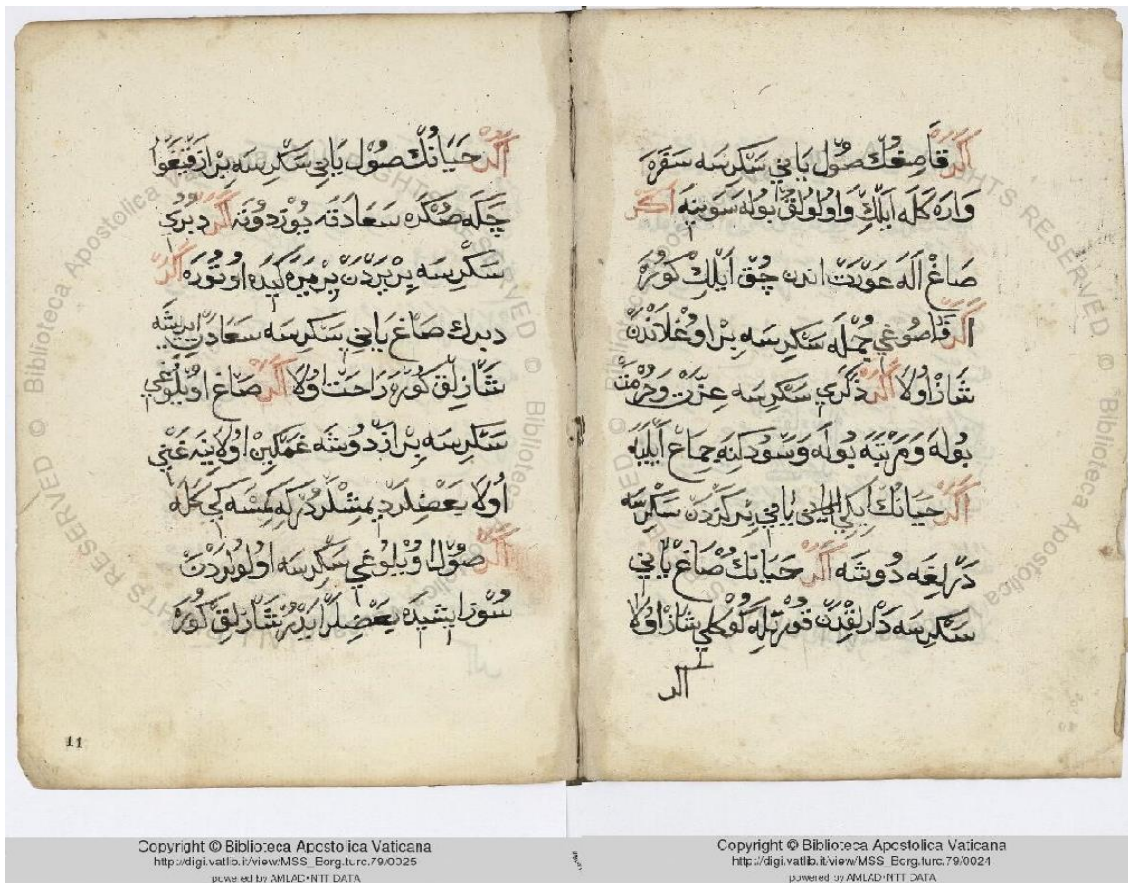 اَكَرْ قَاصِغُكْ صُولْ يَانِي سَكْرِسَه سَفَرَه
وَارَه كَلَه اَيلِكْ وَاولُولُقْ بُولَه سَوِينَه اَكَرْ
صَاغْ اَلَه عَوْرَتْ اندن چُقْ اَيلِكْ كَورَه
اَكَرْ قَاصُوغِي جُمْلَه سَكرِسَه بِرْ اوغْلَانْدَنْ
شَاذْ اُولَا اَكَرْ ذَكَرِي سَكرِسَه عِزَّتْ وَحُرمَتْ
بُولَه وَمَرتَبَه بُولَه وَسَودكنه جِمَاعْ اَيليَه
اَكَرْ حَيَانُكْ اِيكِي يَانِي بِرْكَزدَنْ سَكرِسَه
دَرلغَه دُوشَه اَكَرْ حَيَاتكْ صَاغْ يَانِي
سَكرِسَه دَارلِقْدَنْ قُورْتِلَه كُوكلِي شَاذْ اولَا
اكر
اَكَرْ حَيَانُكْ صُولْ يَانِي سَكْرِسَه بِرْ ازْ قَيغُو
چَكَه صُكْرَه سَعَادَتَه يُوزْ دُوتَه اَكَرْ دبرِي
سَكْرِسَه بِرْ يَرْدَنْ بِرْ يَرَه كيدَه اوتُورَه اَكَرْ
دبرك صَاغْ يَانِي سَكرسَه سَعَادَتَه ايرِيشَه
شَاذلِقْ كورَه رَاحَتْ اولَا اَكَرْ صَاغْ اويلُوغِي
سَكرِسَه بِرْ ازْ دُوشَه غَمكِينْ اولَا يَنَه غَنِي
اُولَا بَعضِلَرْ ديمشلَرْدُرْ كه كِمْسَه كِي كَلَه
اَكَرْ صُولْ اويلُوغِي سَكرِسَه اولُولَردَنْ
سُوز ايشيدَه بَعضِلَرْ ايدَرْ شَاذلِقْ كُورَه
11
Copyright © Biblioteca Apostolica Vaticana
http://digi.vatlib.it/view/MSS_Borg.turc.79/0025
powered by AMLAD•NTT DATA
Copyright © Biblioteca Apostolica Vaticana
http://digi.vatlib.it/view/MSS_Borg.turc.79/0024
powered by AMLAD•NTT DATA